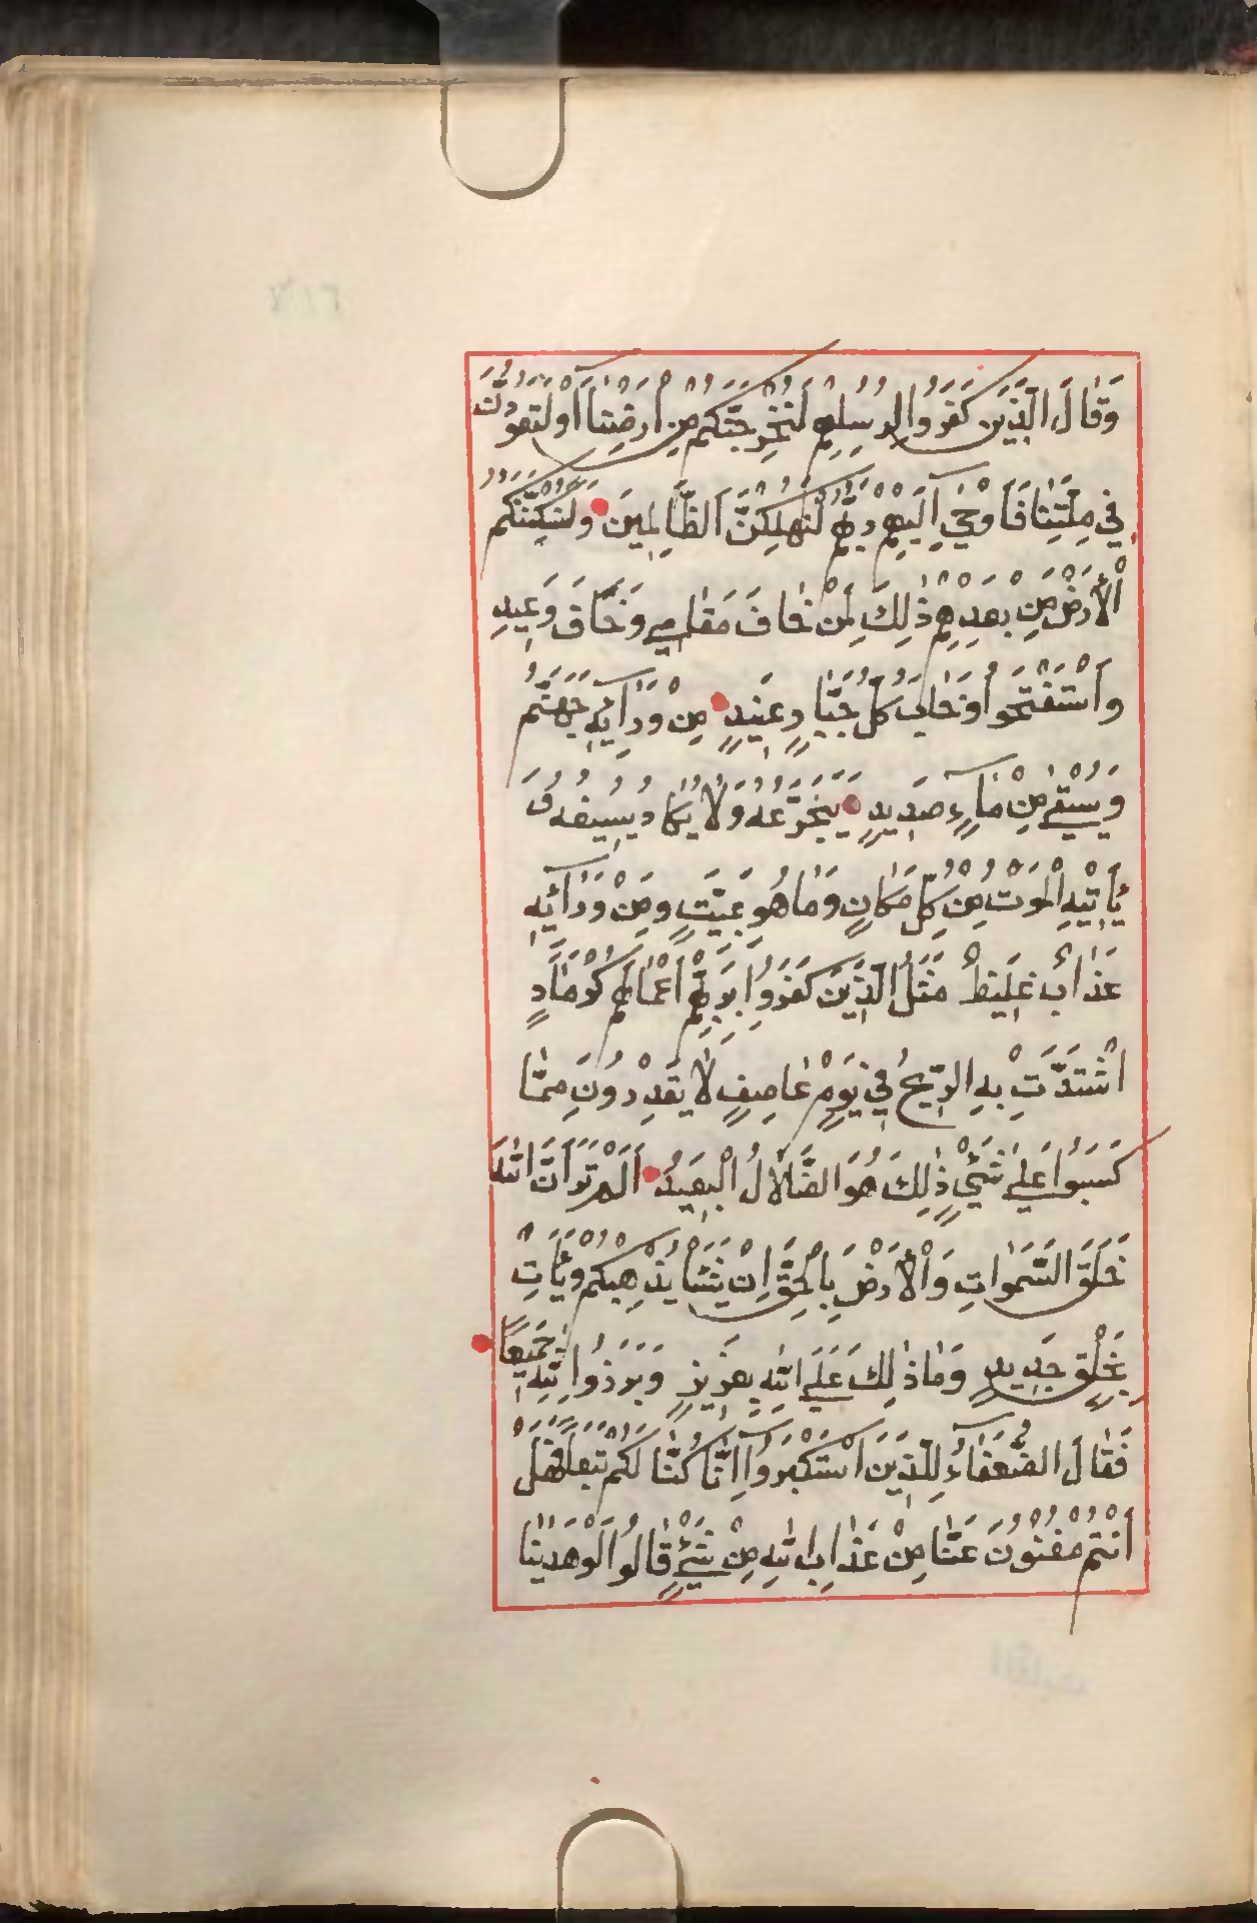 وَقَالَ الَّذِينَ كَفَرُوا لِرُسُلِهِمْ لَنُخْرِجَنَّكُمْ مِنْ أَرْضِنَا أَوْ لَتَعُودُنَّ
فِي مِلَّتِنَا فَأَوْحَى إِلَيْهِمْ رَبُّهُمْ لَنُهْلِكَنَّ الظَّالِمِينَ وَلَنُسْكِنَنَّكُمُ
الْأَرْضَ مِنْ بَعْدِهِمْ ذَلِكَ لِمَنْ خَافَ مَقَامِي وَخَافَ وَعِيدِ
وَاسْتَفْتَحُوا وَخَابَ كُلُّ جَبَّارٍ عَنِيدٍ مِنْ وَرَائِهِ جَهَنَّمُ
وَيُسْقَى مِنْ مَاءٍ صَدِيدٍ يَتَجَرَّعُهُ وَلَا يَكَادُ يُسِيغُهُ وَ
يَأْتِيهِ الْمَوْتُ مِنْ كُلِّ مَكَانٍ وَمَا هُوَ بِمَيِّتٍ وَمِنْ وَرَائِهِ
عَذَابٌ غَلِيظٌ مَثَلُ الَّذِينَ كَفَرُوا بِرَبِّهِمْ أَعْمَالُهُمْ كَرَمَادٍ
اشْتَدَّتْ بِهِ الرِّيحُ فِي يَوْمٍ عَاصِفٍ لَا يَقْدِرُونَ مِمَّا
كَسَبُوا عَلَى شَيْءٍ ذَلِكَ هُوَ الضَّلَالُ الْبَعِيدُ أَلَمْ تَرَ أَنَّ اللَّهَ
خَلَقَ السَّمَوَاتِ وَالْأَرْضَ بِالْحَقِّ إِنْ يَشَأْ يُذْهِبْكُمْ وَيَأْتِ
بِخَلْقٍ جَدِيدٍ وَمَا ذَلِكَ عَلَى اللَّهِ بِعَزِيزٍ وَبَرَزُوا لِلَّهِ جَمِيعًا
فَقَالَ الضُّعَفَاءُ لِلَّذِينَ اسْتَكْبَرُوا إِنَّا كُنَّا لَكُمْ تَبَعًا فَهَلْ
أَنْتُمْ مُغْنُونَ عَنَّا مِنْ عَذَابِ اللَّهِ مِنْ شَيْءٍ قَالُوا لَوْ هَدَيْنَا